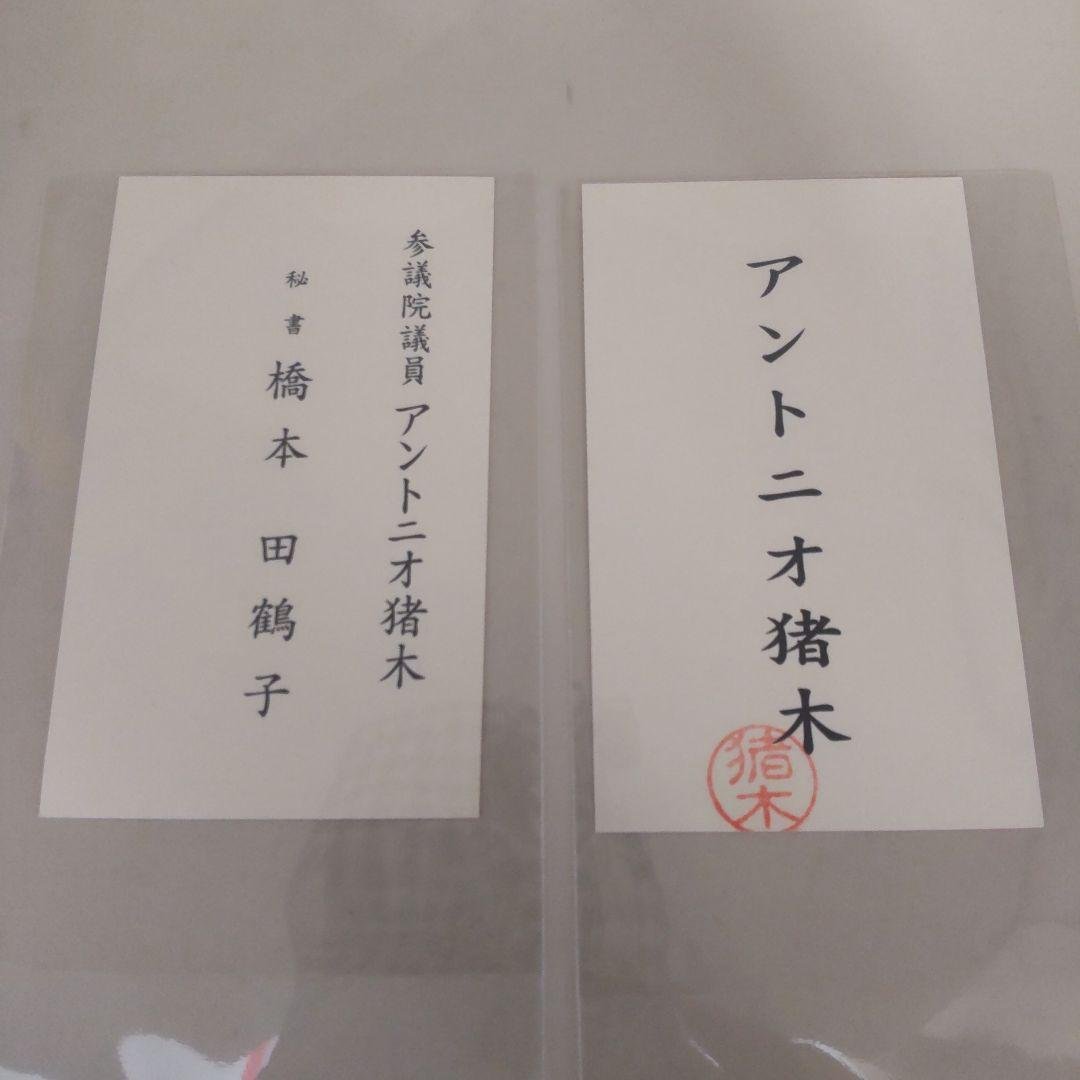 参議院議員 アントニオ猪木
秘書 橋本 田鶴子
アントニオ猪木
猪木